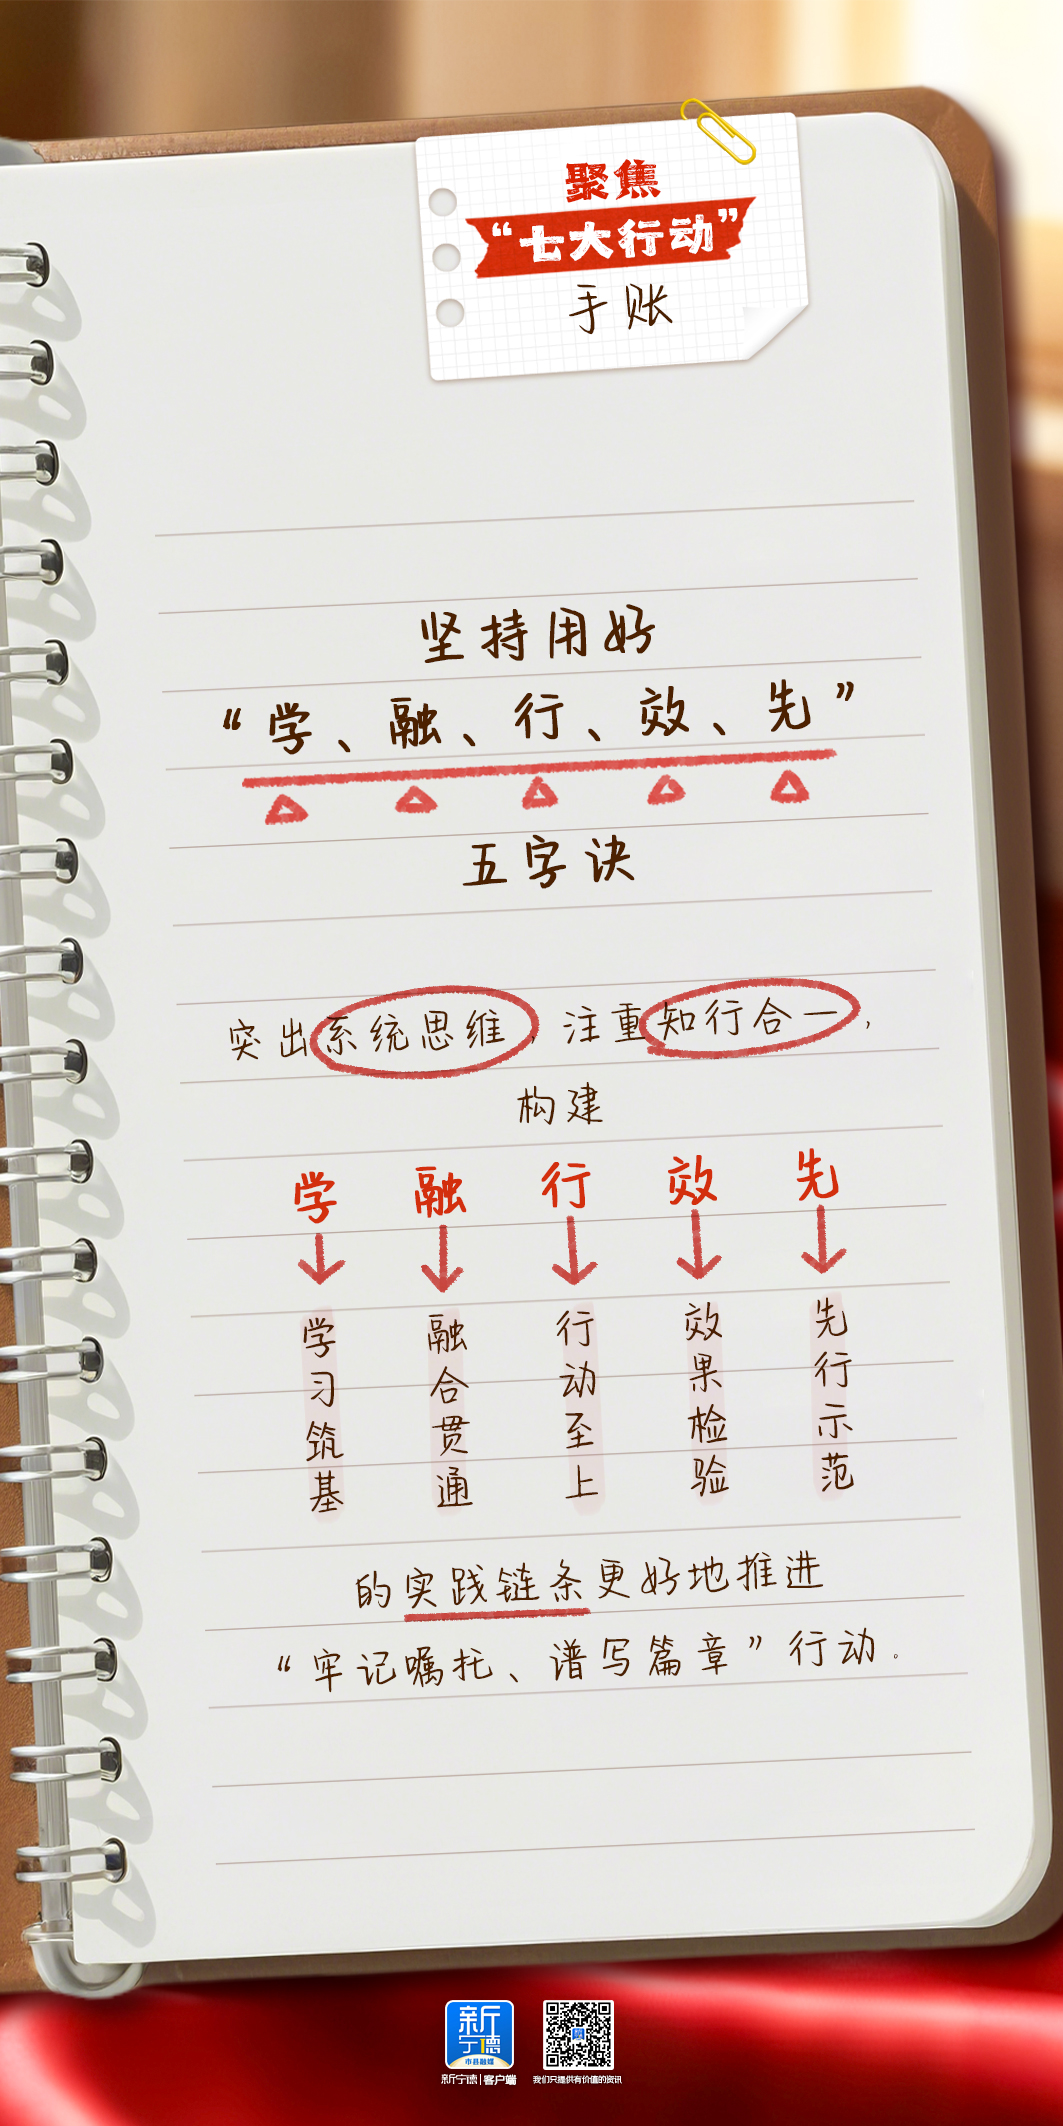 聚焦
“七大行动”
手账
坚持用好
“学、融、行、效、先”
五字诀
突出系统思维，注重知行合一，
构建
学 融 行 效 先
学习筑基
融合贯通
行动至上
效果检验
先行示范
的实践链条更好地推进
“牢记嘱托、谱写篇章”行动。
新宁德
市县融媒
新宁德|客户端
我们只提供有价值的资讯